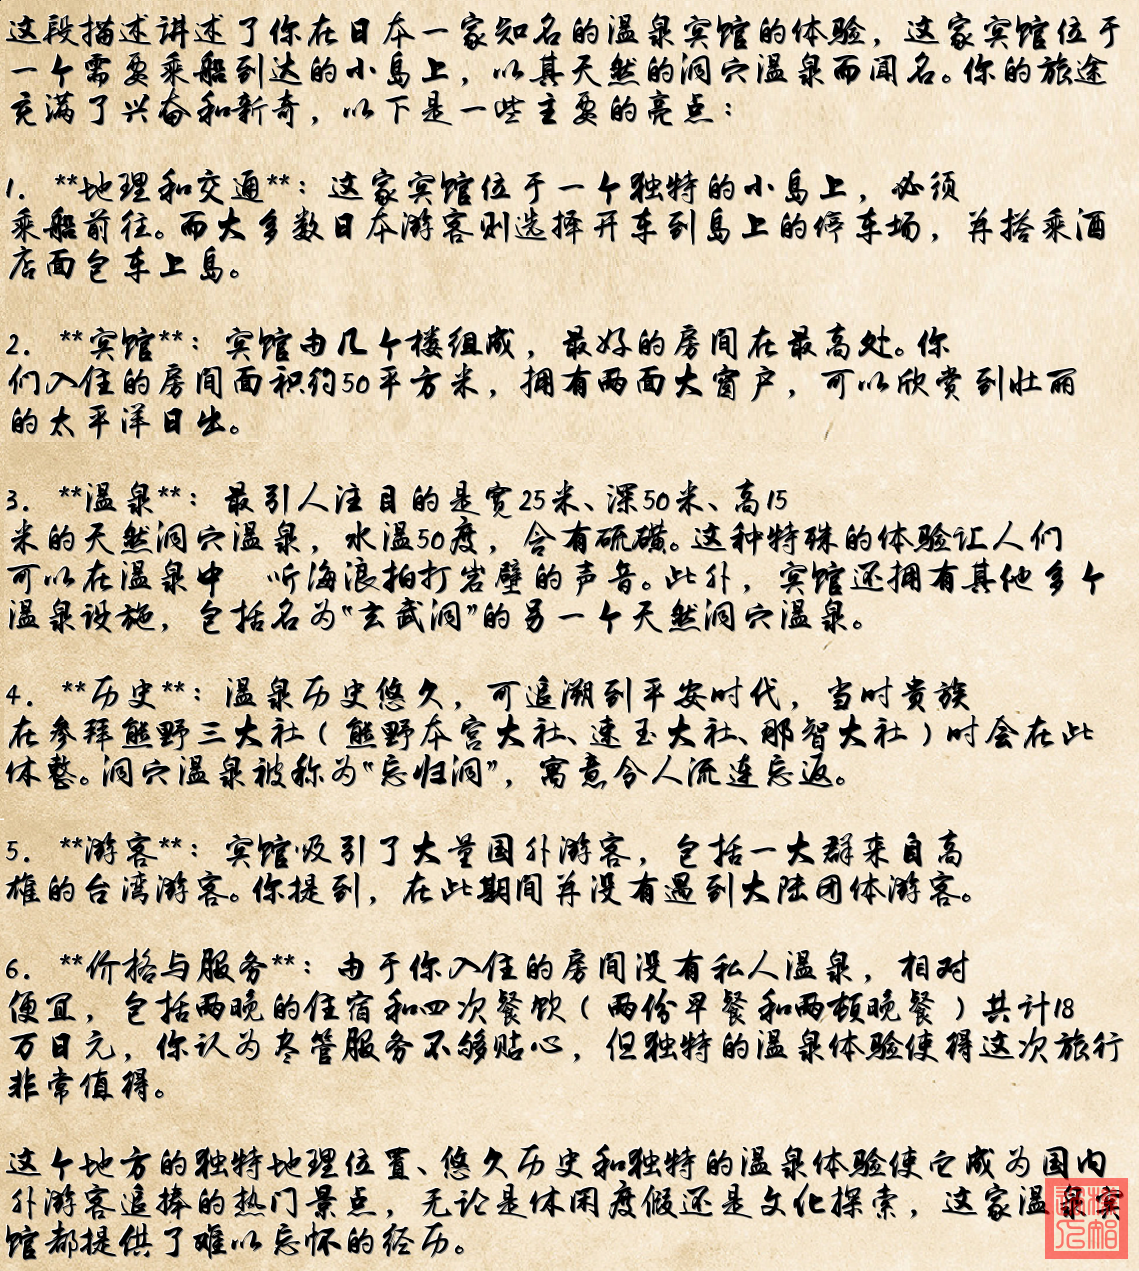 这段描述讲述了你在日本一家知名的温泉宾馆的体验，这家宾馆位于
一个需要乘船到达的小岛上，以其天然的洞穴温泉而闻名。你的旅途
充满了兴奋和新奇，以下是一些主要的亮点：
1. **地理和交通**：这家宾馆位于一个独特的小岛上，必须
乘船前往。而大多数日本游客则选择开车到岛上的停车场，并搭乘酒
店面包车上岛。
2. **宾馆**：宾馆由几个楼组成，最好的房间在最高处。你
们入住的房间面积约50平方米，拥有两面大窗户，可以欣赏到壮丽
的太平洋日出。
3. **温泉**：最引人注目的是宽25米、深50米、高15
米的天然洞穴温泉，水温50度，含有硫磺。这种特殊的体验让人们
可以在温泉中 听海浪拍打岩壁的声音。此外，宾馆还拥有其他多个
温泉设施，包括名为“玄武洞”的另一个天然洞穴温泉。
4. **历史**：温泉历史悠久，可追溯到平安时代，当时贵族
在参拜熊野三大社（熊野本宫大社、速玉大社、那智大社）时会在此
休整。洞穴温泉被称为“忘归洞”，寓意令人流连忘返。
5. **游客**：宾馆吸引了大量国外游客，包括一大群来自高
雄的台湾游客。你提到，在此期间并没有遇到大陆团体游客。
6. **价格与服务**：由于你入住的房间没有私人温泉，相对
便宜，包括两晚的住宿和四次餐饮（两份早餐和两顿晚餐）共计18
万日元，你认为尽管服务不够贴心，但独特的温泉体验使得这次旅行
非常值得。
这个地方的独特地理位置、悠久历史和独特的温泉体验使它成为国内
外游客追捧的热门景点，无论是休闲度假还是文化探索，这家温泉宾
馆都提供了难以忘怀的经历。